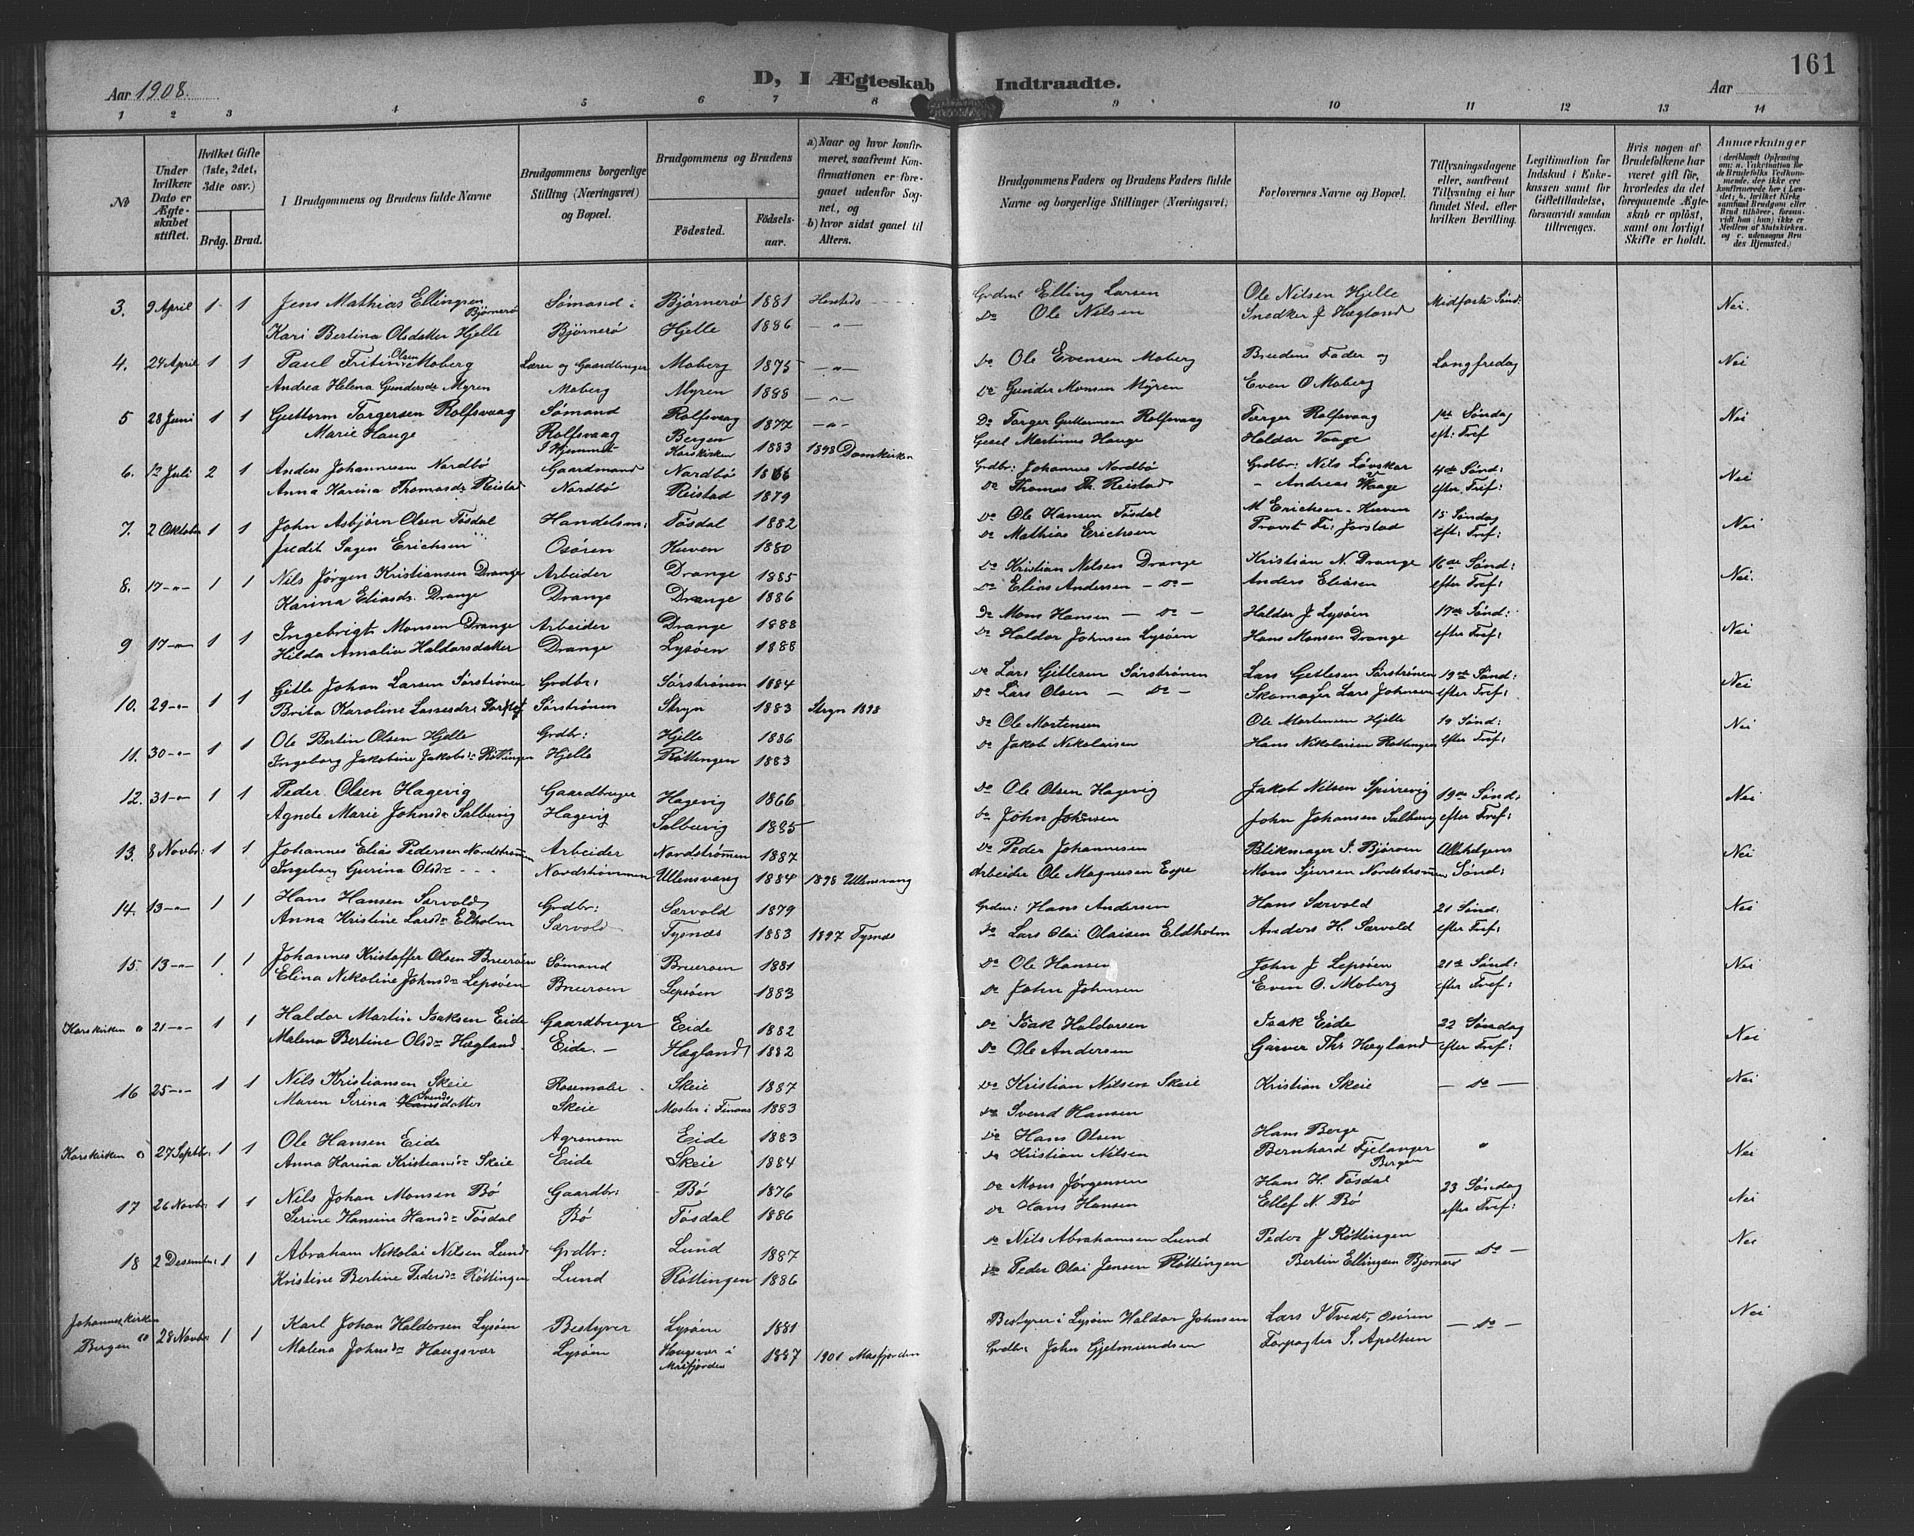 161
D, I Ægteskab Indtraadte.
Aar 1908. Aar
1 2 3 4 5 6 7 8 9 10 11 12 13 14
No
Under hvilken Dato er Ægteskabet stiftet.
Hvilket Gifte (1ste, 2det, 3die osv.) Brdg. Brud.
I Brudgommens og Brudens fulde Navne
Brudgommens borgerlige Stilling (Næringsvei) og Bopæl.
Brudgommens og Brudens Fødested. Fødselsaar.
a) Naar og hvor konfirmeret, saafremt Konfirmationen er foregaaet udenfor Sognet, og b) hvor sidst gaaet til Alters.
Brudgommens Faders og Brudens Faders fulde Navne og borgerlige Stillinger (Næringsvei)
Forlovernes Navne og Bopæl.
Tillysningsdagene eller, saafremt Tillysning ei har fundet Sted, efter hvilken Bevilling.
Legitimation for Indskud i Enkekassen samt for Giftetilladelse, forsaavidt saadan tiltrænges.
Hvis nogen af Brudefolkene har været gift før, hvorledes da det foregaaende Ægteskab er opløst, samt om lovligt Skifte er holdt.
Anmærkninger
3. 9 April 1 1 Jens Mathias Ellingsen Bjørnerø Sømand i Bjørnerø 1881 Grdm: Elling Larsen Ole Nilsen Hjelle Midfaste Sønd: Nei.
Kari Bertina Olsdatter Hjelle Bjørnerø Hjelle 1886 —"— Do Ole Nilsen Snedker J Hægland
4. 24 April 1 1 Paul Fritin Olsen Moberg Lærer og Gaardbruger Moberg 1875 —"— Do Ole Evensen Moberg Brudens Fader og Langfredag Nei
Andrea Helena Gundersdr Myren Moberg Myren 1888 —"— Do Gunder Monsen Myren Even O Moberg
5 28 Juni 1 1 Guttorm Torgersen Rolfsvaag Sømand Rolfsvaag 1877 —"— Do Torger Guttormsen Rolfsvaag Torger Rolfsvaag 1ste Søndag Nei
Marie Hauge Rolfsvaag I Hjemmet Bergen Korskirken 1883 1898 Domkirken Martinus Hauge Haldor Vaage eft: Tref
6. 12 Juli 2 1 Anders Johannesen Nordbø Gaardmand Nordbø 1866 Grdbr: Johannes Nordbø Grdbr: Nils Løvskar 4de Sønd: Nei
Anna Karina Thomasdr Reistad Nordbø Reistad 1879 Do Thomas Th. Reistad - Andreas Vaage efter Tref:
7. 2 Oktober 1 1 John Asbjørn Olsen Tøsdal Handelsm: Tøsdal 1882 Do Ole Hansen Tøsdal M Erichsen - Kuven 15 Søndag Nei
Judit Sagen Erichsen Osøren Kuven 1880 Do Mathias Erichsen Provst Fr: Jorstad eft: Tref:
8. 17 —"— 1 1 Nils Jørgen Kristiansen Drange Arbeider Drange 1885 Do Kristian Nilsen Drange Kristian N. Drange 16de Sønd: Nei.
Karina Eliasdr Drange Drange Drange 1886 Do Elias Andersen — Do — Anders Eliasen efter Tref:
9 17 —"— 1 1 Ingebrigt Monsen Drange Arbeider Drange 1888 Do Mons Hansen — Do — Haldor J Lysøen 17de Sønd: Nei
Hilda Amalia Haldorsdatter Drange Lysøen 1888 Do Haldor Johnsen Lysøen Hans Monsen Drange efter Tref:
10. 29 —"— 1 1 Gitle Johan Larsen Sørstrønen Grdbr: Sørstrønen 1884 Do Lars Gitlesen Sørstrønen Lars Gitlesen Sørstrønen 19de Sønd: Nei
Brita Karoline Lassesdr Sørstrønen Stryn 1883 Stryn 1898 Do Lars Olsen — Do — Skomager Lars Johnsen efter Tref:
11. 30 —"— 1 1 Ole Bertin Olsen Hjelle Grdbr: Hjelle 1886 Do Ole Mortensen Ole Mortensen Hjelle 19 Sønd: Nei
Ingeborg Jakobine Jakobsdr Røttingen Hjelle Røttingen 1883 Do Jakob Nikolaisen Hans Nikolaisen Røttingen efter Tref:
12. 31 —"— 1 1 Peder Olsen Hagevig Gaardbruger Hagevig 1866 Do Ole Olsen Hagevig Jakob Nilsen Spirrevig 19de Sønd: Nei
Agnete Marie Johnsdr Salbuvig Hagevig Salbuvig 1885 Do John Johnsen John Johansen Salbuvig efter Tref:
13. 8 Novbr: 1 1 Johannes Elias Pedersen Nordstrømmen Arbeider Nordstrømmen 1887 Do Peder Johannesen Blikmager I. Bjøroen Allehelgens Nei
Ingeborg Gurina Olsdr - - - Nordstrømmen Ullensvang 1884 1898 Ullensvang Arbeider Ole Magnusen Espe Mons Sjursen Nordstrømmen Sønd:
14. 13 —"— 1 1 Hans Hansen Særvold Grdbr: Særvold 1879 Grdm: Hans Andersen Hans Særvold 21 Sønd: Nei
Anna Kristine Larsdr Elholm Særvold Tysnes 1883 1897 Tysnes Do Lars Olai Olaisen Eldholm Anders H. Særvold efter Tref:
15. 13 —"— 1 1 Johannes Kristoffer Olsen Brueroen Sømand Brueroen 1881 Do Ole Hansen John J Lepsøen 21de Sønd: Nei
Elina Nikoline Johnsdr Lepsøen Brueroen Lepsøen 1883 Do John Johnsen Even O. Moberg efter Tref:
Korskirken 21 —"— 1 1 Haldor Martin Isaksen Eide Gaardbruger Eide 1882 Do Isak Haldorsen Isak Eide 22 Søndag Nei
Malena Bertine Olsdr Hægland Eide. — Hægland 1882 Do Ole Andersen Garver Ths Hægland efter Tref:
16 25 —"— 1 1 Nils Kristiansen Skeie Rosemaler Skeie 1887 Do Kristian Nilsen Skeie Kristian Skeie — Do — Nei
Maren Serina Svendsdatter Skeie Moster i Finaas 1883 Do Svend Hansen
Korskirken 27 Septbr: 1 1 Ole Hansen Eide Agronom Eide 1883 Do Hans Olsen Hans Berge " Nei
Anna Karina Kristiansdr Skeie Eide Skeie 1884 Do Kristian Nilsen Bernhard Fjelanger Bergen
17 26 Novbr 1 1 Nils Johan Monsen Bø Gaardbr: Bø 1876 Do Mons Jørgensen Hans H. Tøsdal 23 Søndag Nei
Serine Hansine Hansdr Tøsdal Bø Tøsdal 1886 Do Hans Hansen Ellef N. Bø efter Tref:
18 2 Desember 1 1 Abraham Nikolai Nilsen Lund Grdbr: Lund 1887 Do Nils Abrahamsen Lund Peder J Røttingen — Do — Nei
Kristine Bertine Pedersdr Røttingen Lund Røttingen 1886 Do Peder Olai Jensen Røttingen Bertin Ellingsen Bjørnerø
Johanneskirken Bergen 28 Novbr 1 1 Karl Johan Haldorsen Lysøen Bestyrer Lysøen 1881 Bestyrer i Lysøen Haldor Johnsen Lars I Tvedt, Osøren — Do — Nei
Malena Johnsdr Haugsvær Lysøen Haugsvær i Masfjorden 1887 1901 Masfjorden Grdbr John Gjelmundsen Forpagter S. Apeltun